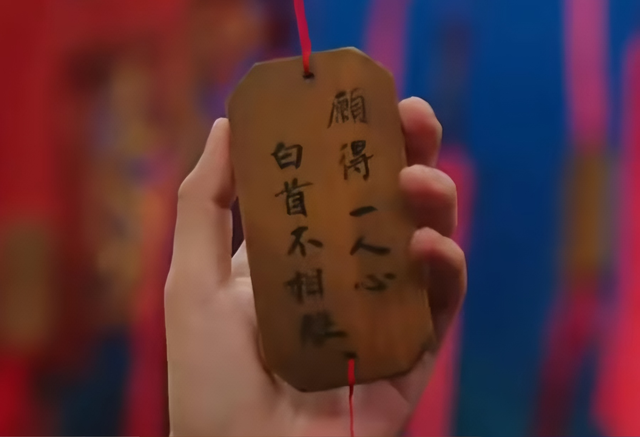 願得一人心
白首不相離